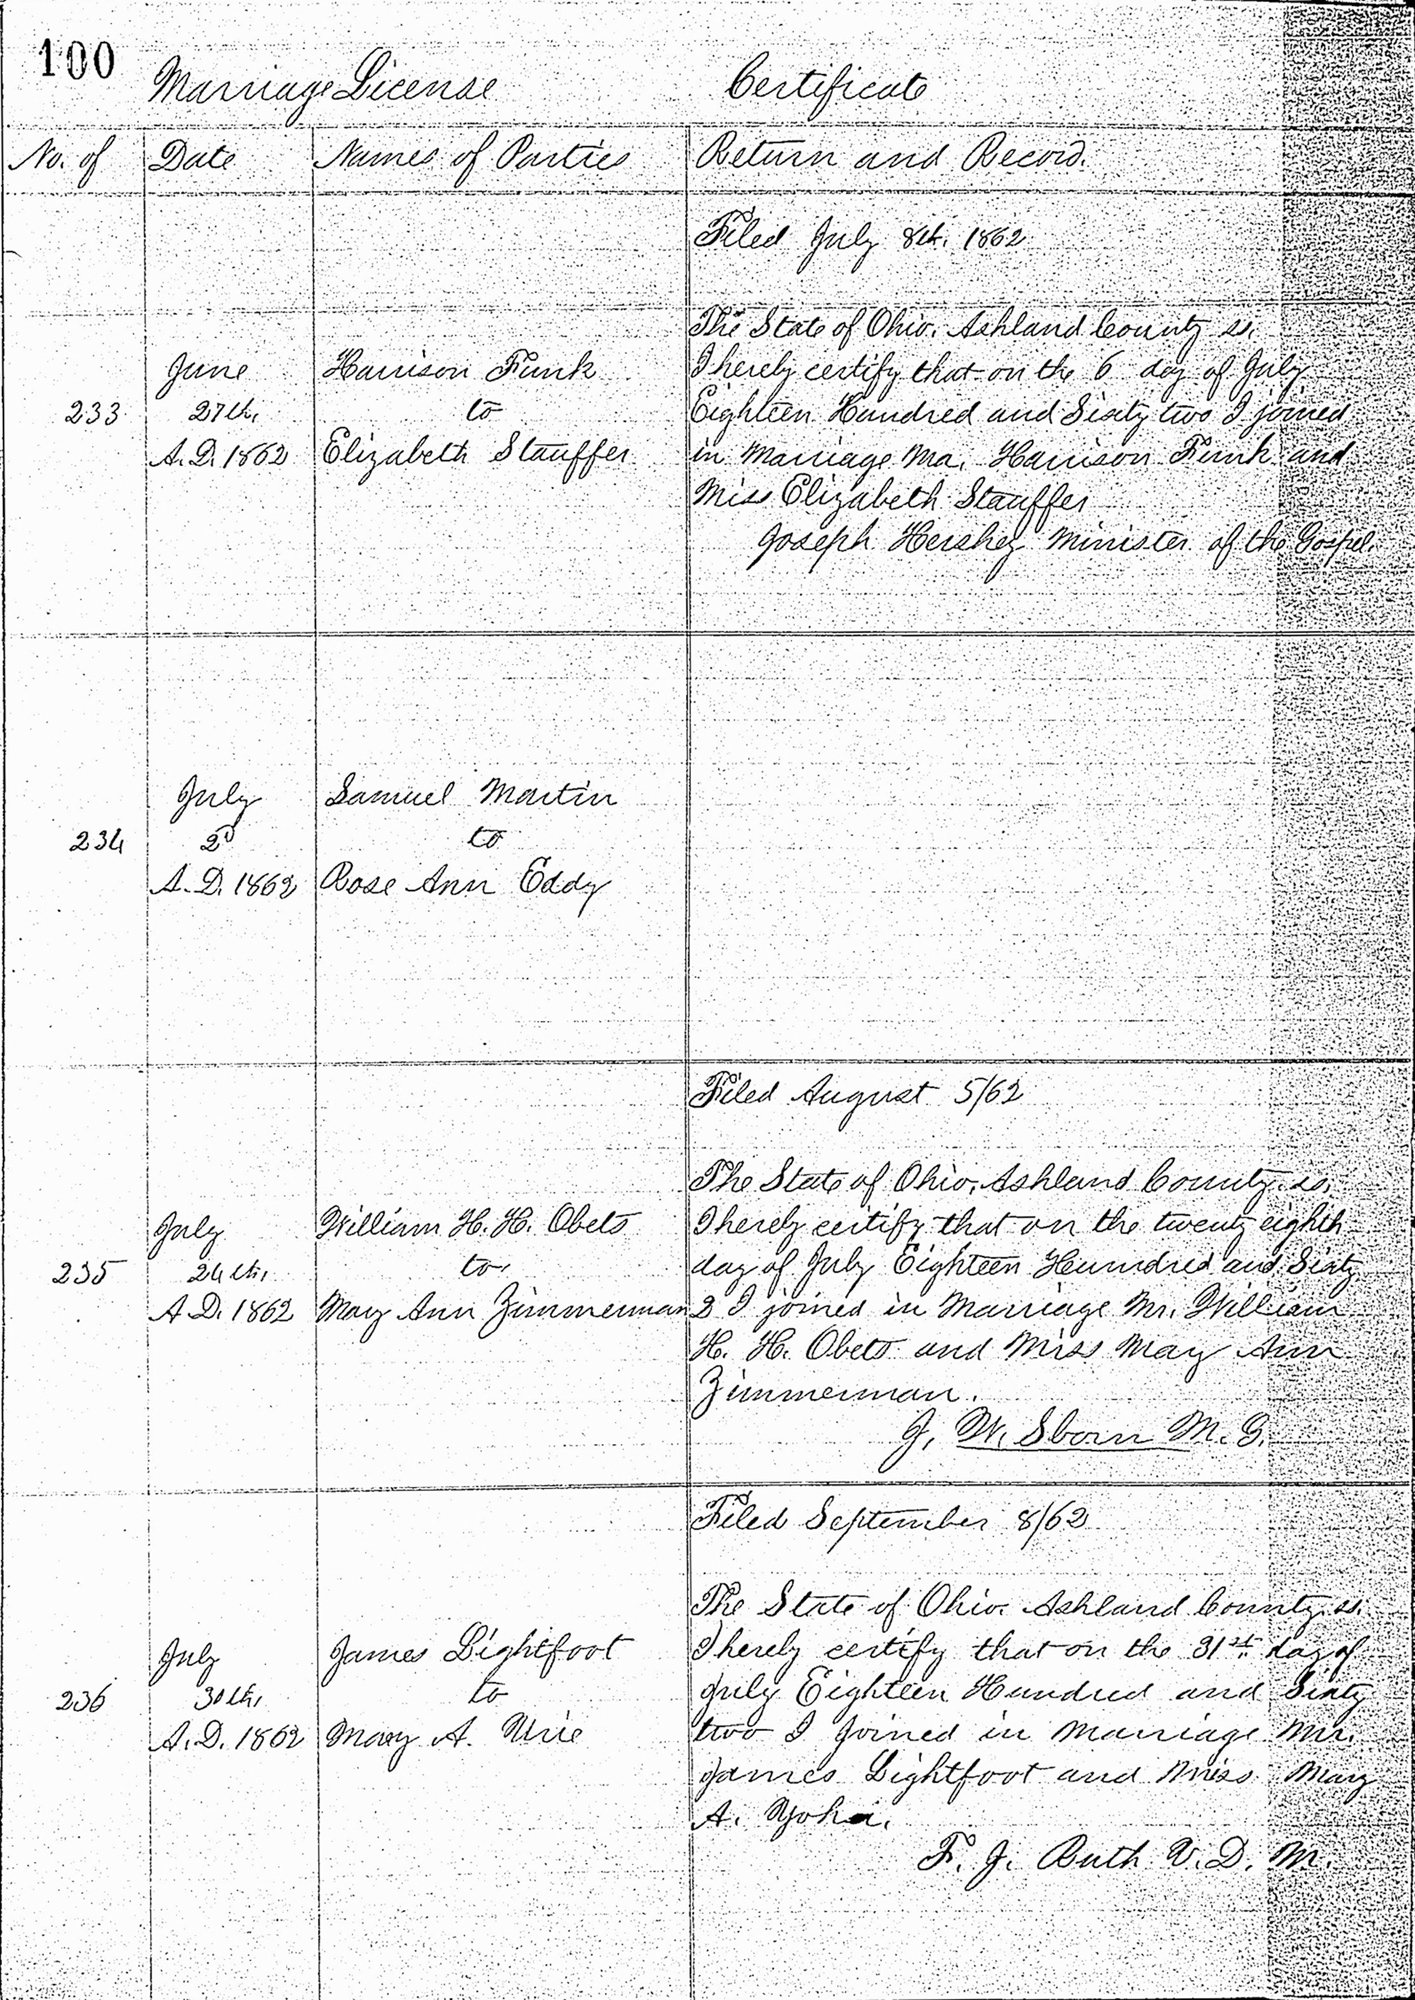 100
Marriage License Certificate
No. of Date Names of Parties Return and Record.
Filed July 8th. 1862
The State of Ohio. Ashland County ss.
I hereby certify that on the 6 day of July
Eighteen Hundred and Sixty two I joined
in Marriage Mr. Harrison Funk and
Miss Elizabeth Stauffer
Joseph Hershey Minister of the Gospel.
233
June
27th.
A.D. 1862
Harrison Funk
to
Elizabeth Stauffer
234
July
2d
A.D. 1862
Samuel Martin
to
Rose Ann Eddy
Filed August 5/62
The State of Ohio, Ashland County ss.
I hereby certify that on the twenty eighth
day of July Eighteen Hundred and Sixty
2 I joined in Marriage Mr. William
H. H. Obets and Miss May Ann
Zimmerman.
J. W. Sborn M. G.
235
July
24th.
A.D. 1862
William H. H. Obets
to
Mary Ann Zimmerman
Filed September 8/62
The State of Ohio. Ashland County ss.
I hereby certify that on the 31st day of
July Eighteen Hundred and Sixty
two I joined in Marriage Mr.
James Lightfoot and Miss Mary
A.
F. J. Ruth V. D. M.
236
July
30th.
A.D. 1862
James Lightfoot
to
Mary A. Urie